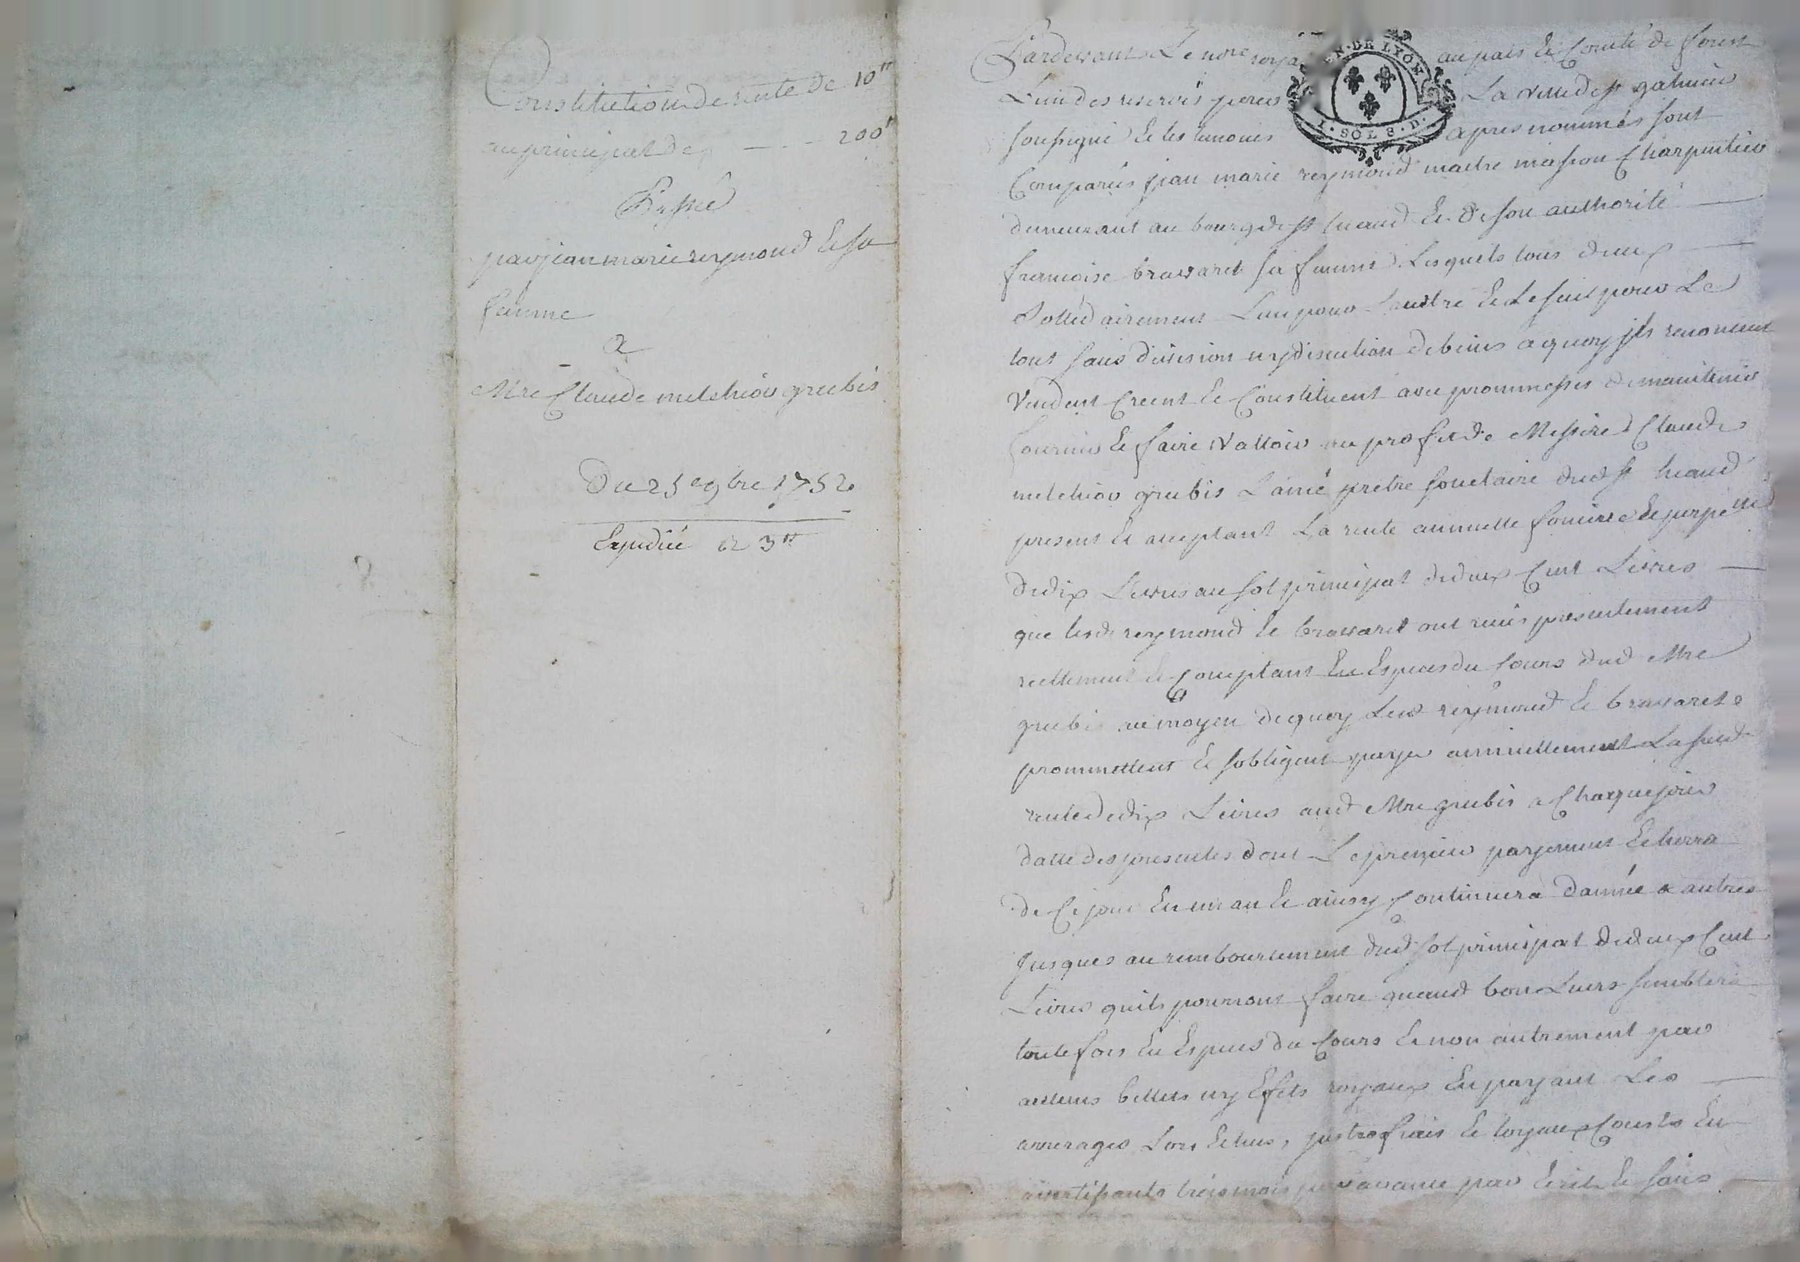 Constitution de rente de 10tt
au principal de - - - 200tt
Passé
par jean marie reymond et sa
femme
a
Mre Claude melchior grubis
Du 25 9bre 1752
Expedié et 3tt
GEN. DE LYON
1. SOL 8. D.
Pardevant Le nore royal au pais et Comté de forest
L'un des reservés pour La ville de st galmier
soussigné et les temoins apres nommés sont
Comparus jean marie reymond maitre masson Charpentier
demeurant au bourg de st heand et de son authorité
francoise brossaret sa femme Lesquels tous deux
Sollidairement L'un pour L'autre et Le seul pour Le
tout sans division ny discution de biens a quoy ils renoncent
Vendent Creent et Constituent avec prommesses de maintenir
fournir et faire Valloir au profit de Messire Claude
melchior grubis L'ainé pretre societaire dud st heand
present et acceptant La rente annuelle fonciere et perpetuelle
de dix Livres au sol principal de deux Cent Livres
que lesd reymond et brossaret ont reçus presentement
reellement et Comptant En Especes du Cours dud Mre
grubis au moyen de quoy Lesd reymond et brossaret
prommettent et s'obligent payer annuellement La susd
rente de dix Livres aud Mre grubis a Chaque jour
datte des presentes dont Le premier payement Echerra
de Ce jour En un an et ainsy Continuera d'année a autres
jusques au remboursement dud sol principal de deux Cent
Livres qu'ils pourront faire quand bon Leurs semblera
toute fois En Especes du Cours et non autrement par
aucuns billets ny Effets royaux En payant Les
arrerages Lors Echus, justes frais et loyaux Cousts En
avertissants trois mois par avance par Ecrit et sans